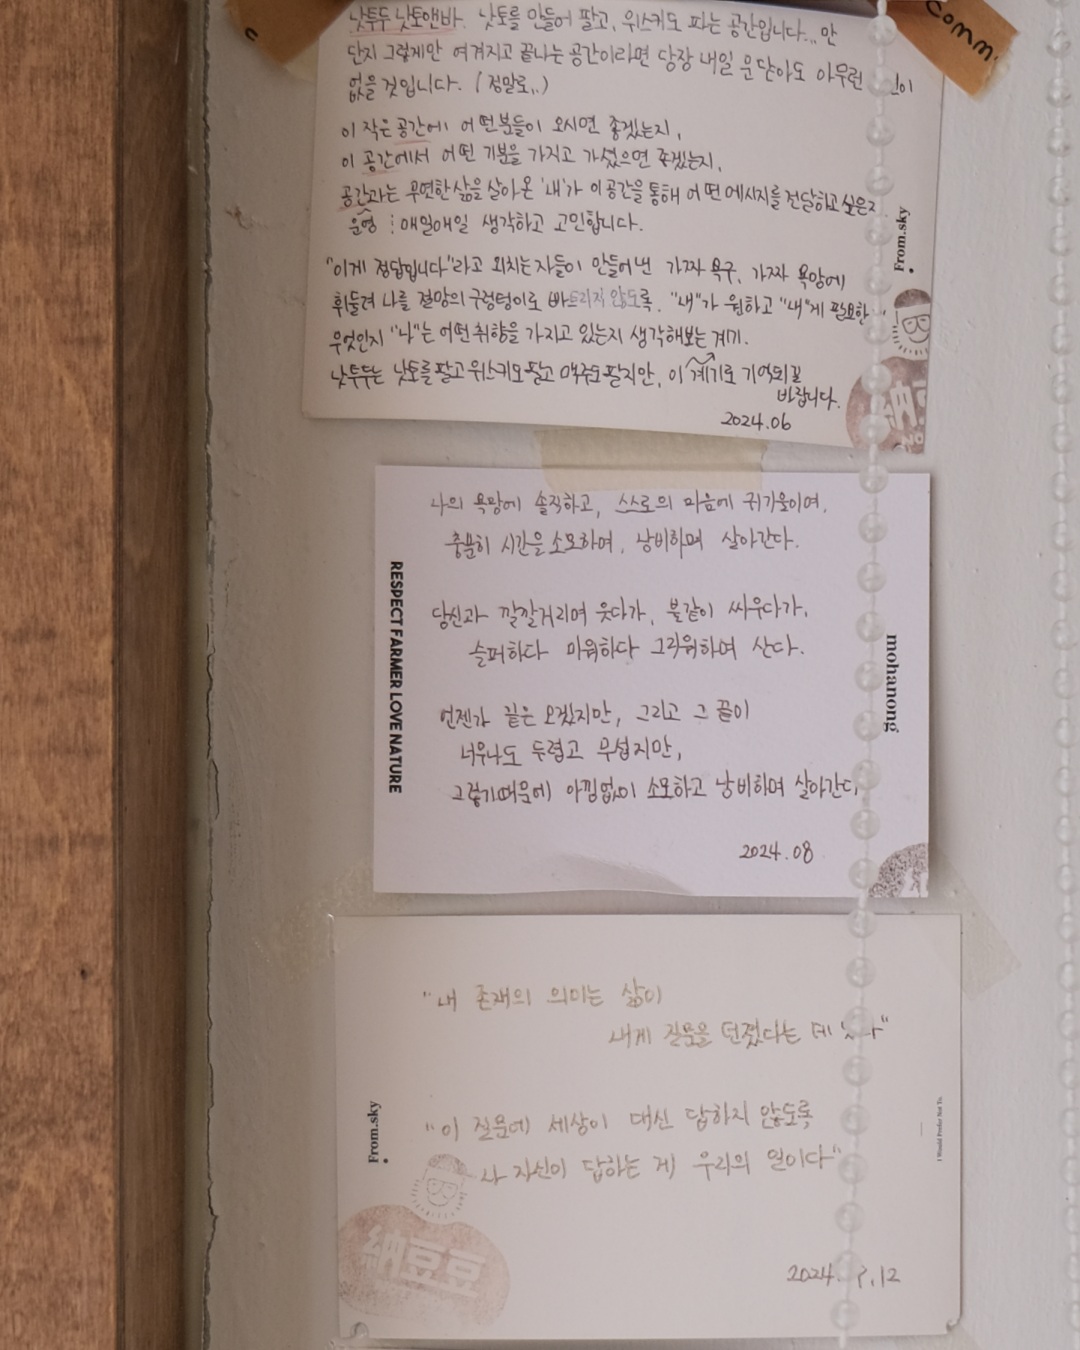 Comm
낫투두 낫토앤바. 낫토를 만들어 팔고, 위스키도 파는 공간입니다... 만
단지 그렇게만 여겨지고 끝나는 공간이라면 당장 내일 문 닫아도 아무런
없을 것입니다. (정말로..)
이 작은 공간에 어떤 분들이 오시면 좋겠는지,
이 공간에서 어떤 기분을 가지고 가셨으면 좋겠는지,
공간과는 무연한 삶을 살아온 '내'가 이 공간을 통해 어떤 메시지를 전달하고 싶은지
운영
매일매일 생각하고 고민합니다.
"이게 정답입니다"라고 외치는 자들이 만들어낸 가짜 욕구, 가짜 욕망에
휘둘려 나를 절망의 구렁텅이로 빠트리지 않도록. "내"가 원하고 "내"게 필요한
무엇인지 "나"는 어떤 취향을 가지고 있는지 생각해보는 계기.
낫투두는 낫토를 팔고 위스키도 팔고 맥주도 팔지만, 이 계기로 기억되길
바랍니다.
2024.06
From.sky
나의 욕망에 솔직하고, 스스로의 마음에 귀기울이며,
충분히 시간을 소모하며, 낭비하며 살아간다.
당신과 깔깔거리며 웃다가, 불같이 싸우다가,
슬퍼하다 미워하다 그리워하며 산다.
언젠가 끝은 오겠지만, 그리고 그 끝이
너무나도 두렵고 무섭지만,
그렇기때문에 아낌없이 소모하고 낭비하며 살아간다
2024.08
RESPECT FARMER LOVE NATURE
mohanong
"내 존재의 의미는 삶이
내게 질문을 던졌다는 데
"이 질문에 세상이 대신 답하지 않도록
자신이 답하는 게 우리의 일이다"
2024.
.12
From.sky
納豆豆
I Would Prefer Not To.